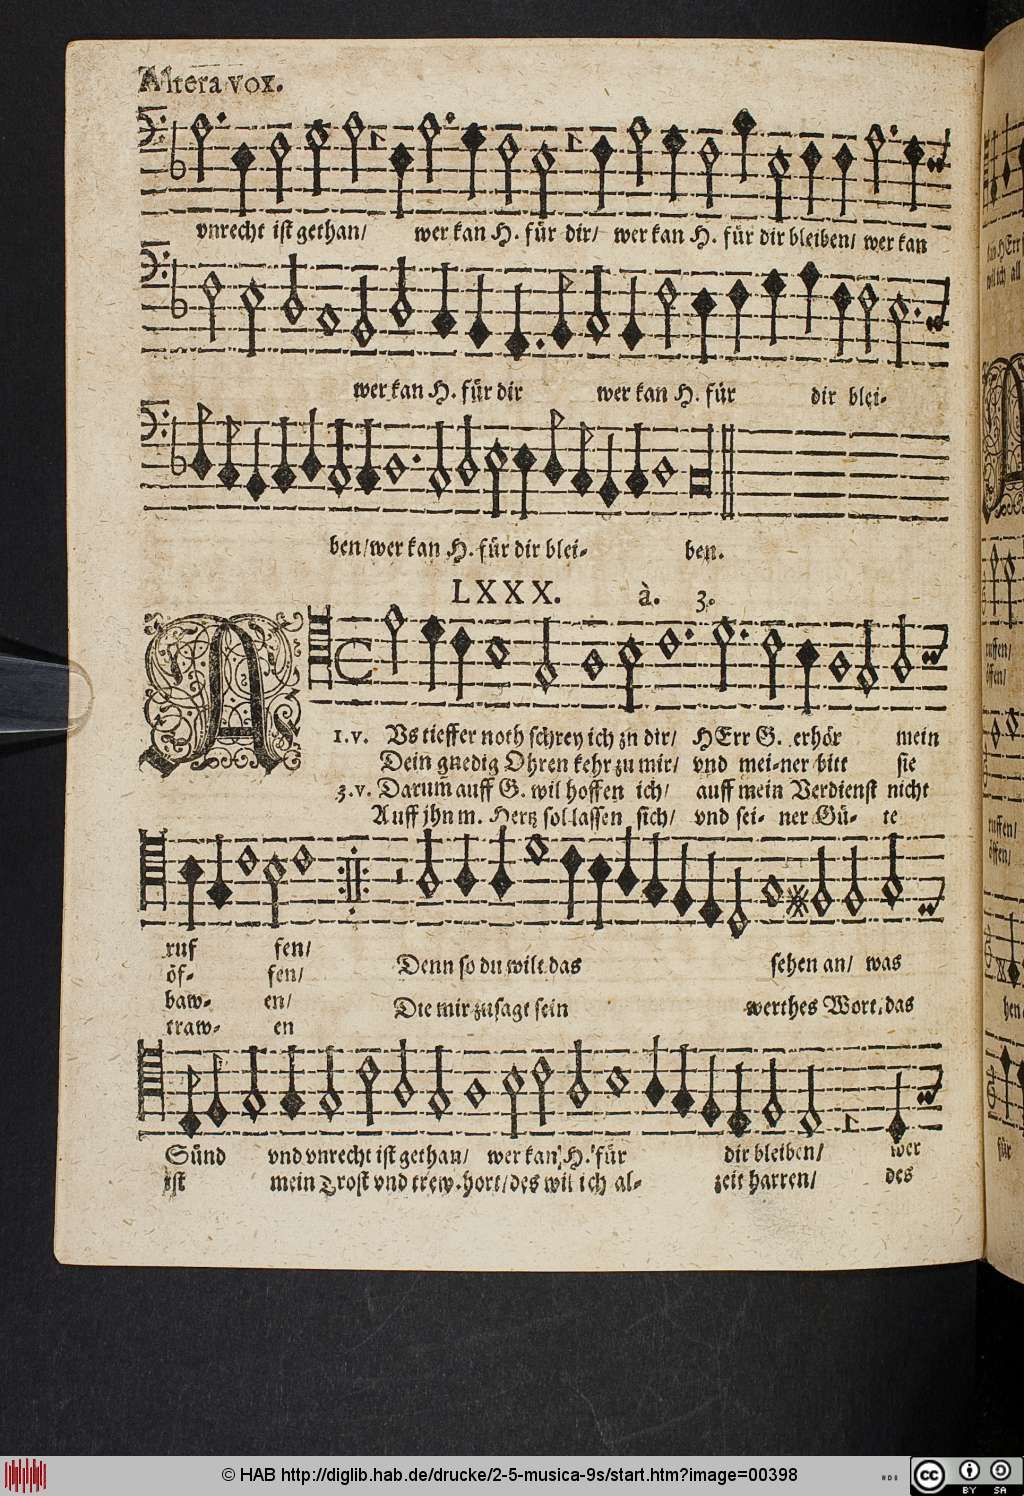 Altera vox.
vnrecht ist gethan/ wer kan H. für dir/ wer kan H. für dir bleiben/ wer kan
wer kan H. für dir wer kan H. für dir blei-
ben/wer kan H. für dir blei- ben.
LXXX. à. 3.
A
1. v. Vs tieffer noth schrey ich zn dir/ HErr G. erhör mein
Dein gnedig Ohren kehr zu mir/ vnd mei-ner bitt sie
3. v. Darum̃ auff G. wil hoffen ich/ auff mein Verdienst nicht
Auff jhn m. Hertz sol lassen sich/ vnd sei- ner Gü- te
ruf fen/
öf- fen/ Denn so du wilt das sehen an/ was
baw- en/ Die mir zusagt sein werthes Wort, das
traw- en
Sünd vnd vnrecht ist gethan/ wer kan H. für dir bleiben/ wer
ist mein Trost vnd trew. hort/ des wil ich al- zeit harren/ des
ruffen/
öffen/
ruffen/
öffen/
für
© HAB http://diglib.hab.de/drucke/2-5-musica-9s/start.htm?image=00398
cc
BY SA